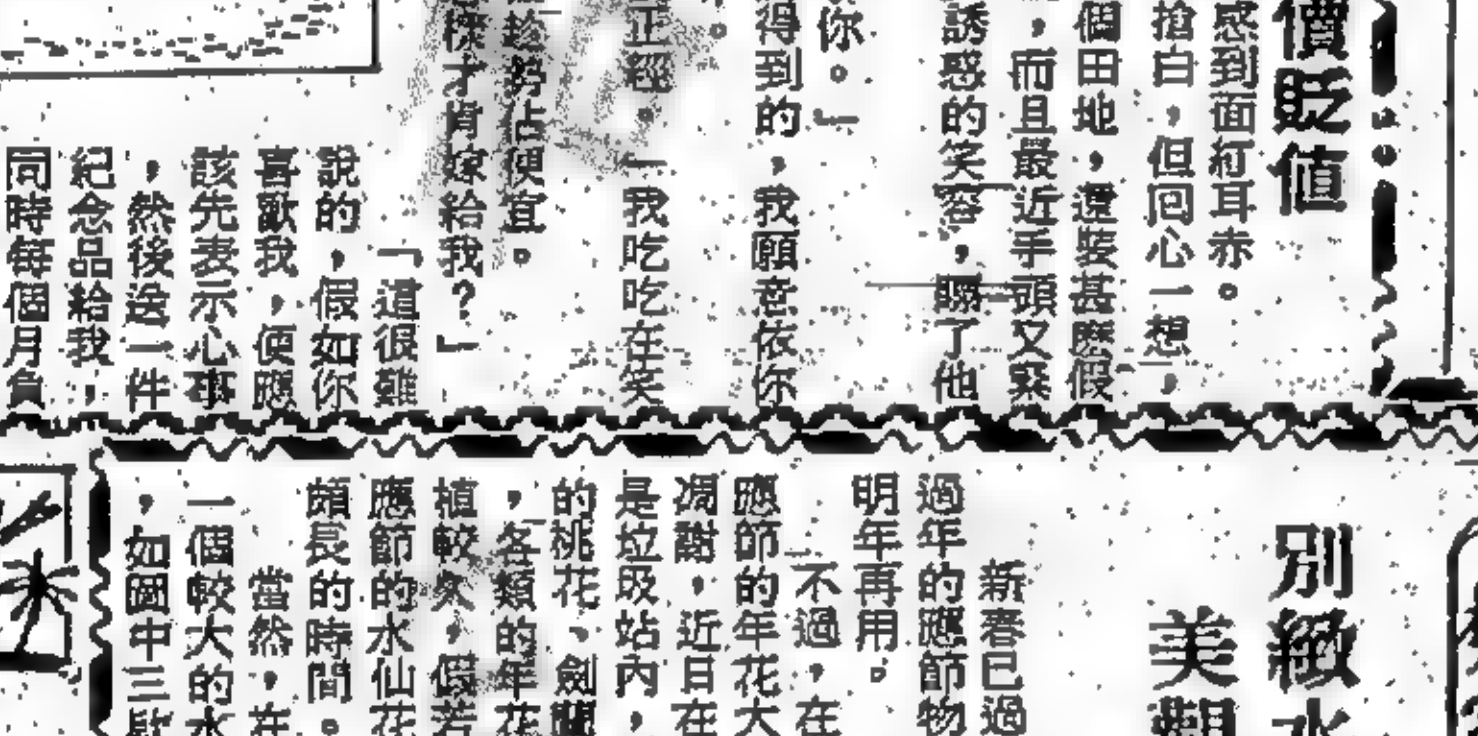 價貶值
感到面紅耳赤。
搶白，但回心一想，
個田地，還裝甚麽假
，而且最近手頭又窘
誘惑的笑容，瞟了他
你。」
得到的，我願意依你
正經。「我吃吃在笑
趁勢佔便宜。
才肯嫁給我？」
「這很難
說的，假如你
喜歡我，便應
該先表示心事
，然後送一件
紀念品給我，
同時每個月負
別緻水
美觀
新春已過
過年的應節物
明年再用。
不過，在
應節的年花大
凋謝，近日在
是垃圾站內，
的桃花、劍蘭
，各類的年花
植較久，假若
應節的水仙花
頗長的時間。
當然，在
一個較大的水
，如圖中三